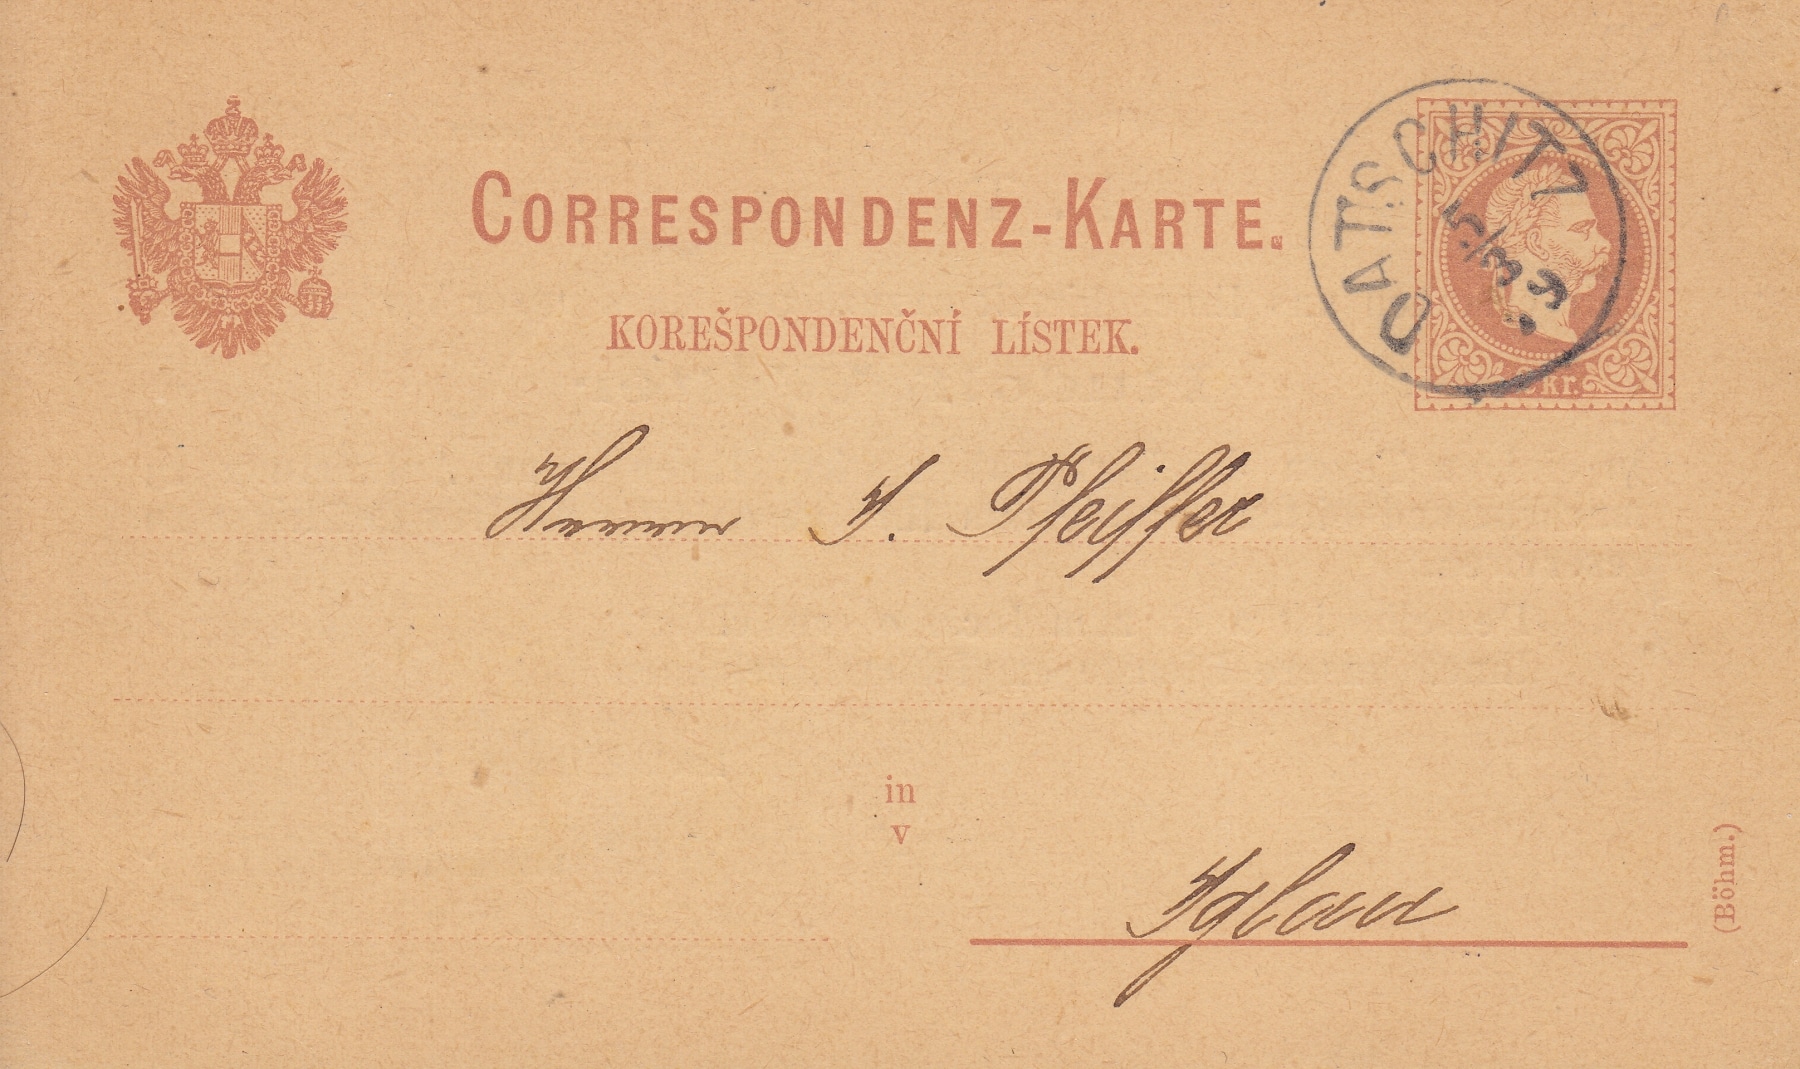 CORRESPONDENZ-KARTE.
KOREŠPONDENČNÍ LÍSTEK.
DATSCHITZ
5/3
kr.
Herrn J. Pfeiffer
in
v
Iglau
(Böhm.)